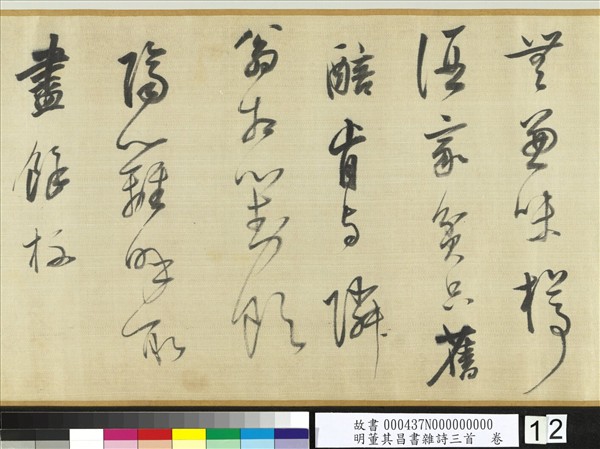 無兼味樽
酒家貧只舊
醅肯與隣
翁相對飲
隔籬呼取
盡餘杯
故書 000437N000000000
明董其昌書雜詩三首 卷
12